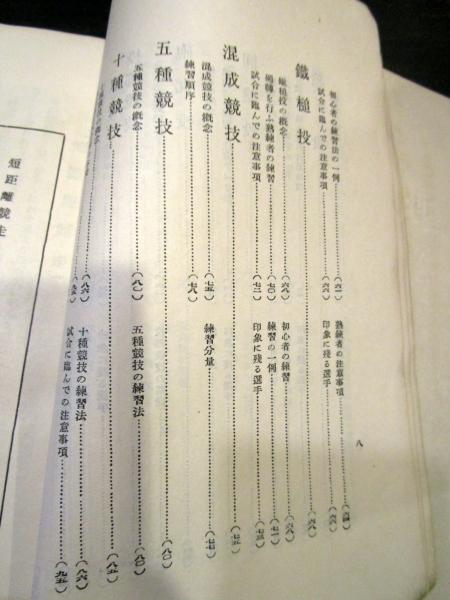 初心者の練習法の一例……(六一)
熟練者の注意事項……(六四)
試合に臨んでの注意事項……(六六)
印象に残る選手……(六六)
鐵槌投……(六八)
鐵槌投の概念……(六八)
初心者の練習……(六八)
廻轉を行ふ熟練者の練習……(七〇)
練習の一例……(七一)
試合に臨んでの注意事項……(七二)
印象に残る選手……(七三)
混成競技……(七五)
混成競技の概念……(七五)
練習分量……(七七)
練習順序……(七八)
五種競技……(八〇)
五種競技の概念……(八〇)
五種競技の練習法……(八〇)
十種競技……(八五)
十種競技の概念……(八六)
十種競技の練習法……(八六)
試合に臨んでの注意事項……(九五)
八
短距離競走